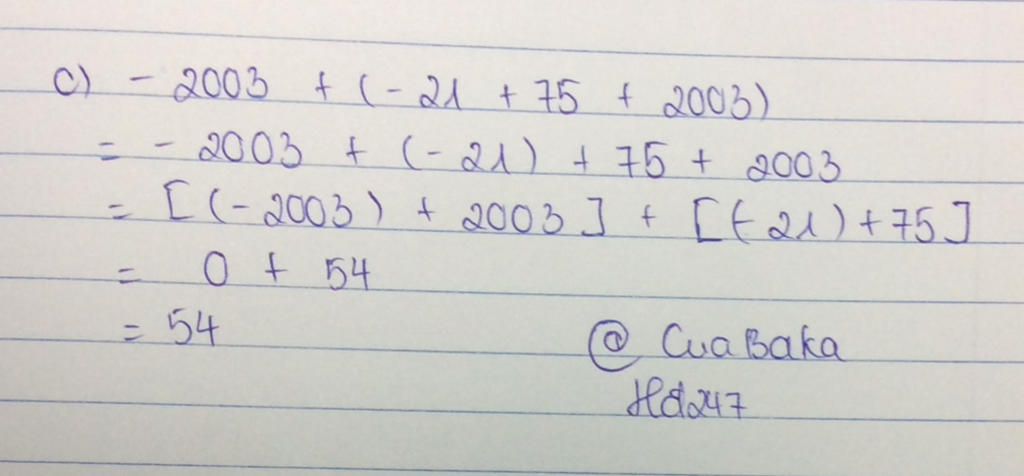 c) - 2003 + (- 21 + 75 + 2003)
= - 2003 + (- 21) + 75 + 2003
= [ (- 2003) + 2003 ] + [ (- 21) + 75 ]
= 0 + 54
= 54
@ CuaBaka
Hd247